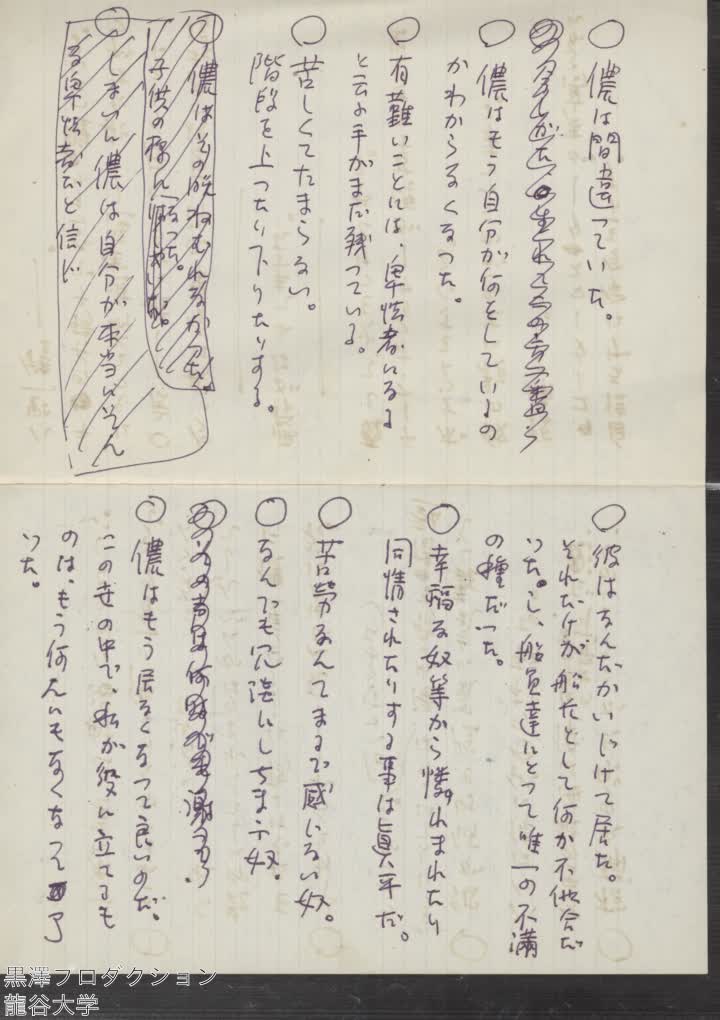 ○儂は間違っていた。
○儂はもう自分が何をしているの
かわからなくなった。
○有難いことには、卑怯者になる
と云ふ手がまだ残っている。
○苦しくてたまらない。
階段を上ったり下りたりする。
○儂はその晩ねむれなかった。
子供の様になった。
○しまいに儂は自分が本当にそん
な卑怯者だと信じ
○彼はなんだかいじけて居た。
それだけが船長として何か不似合だ
った。し、船員達にとって唯一の不満
の種だった。
○幸福な奴等から憐れまれたり
同情されたりする事は真平だ。
○苦労なんてまるで感じない奴。
○なんでも冗談にしちまふ奴。
○儂はもう居なくなって良いのだ。
この世の中で、私が役に立てるも
のは、もう何んにもなくなって了
った。
黒澤プロダクション
龍谷大学